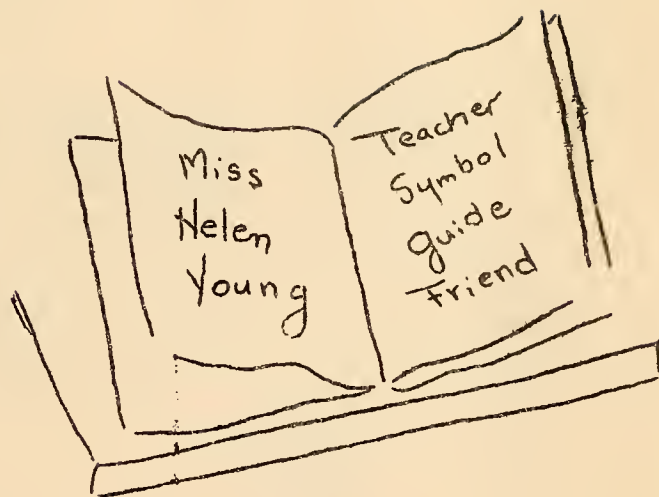 Miss
Helen
Young
Teacher
Symbol
guide
Friend